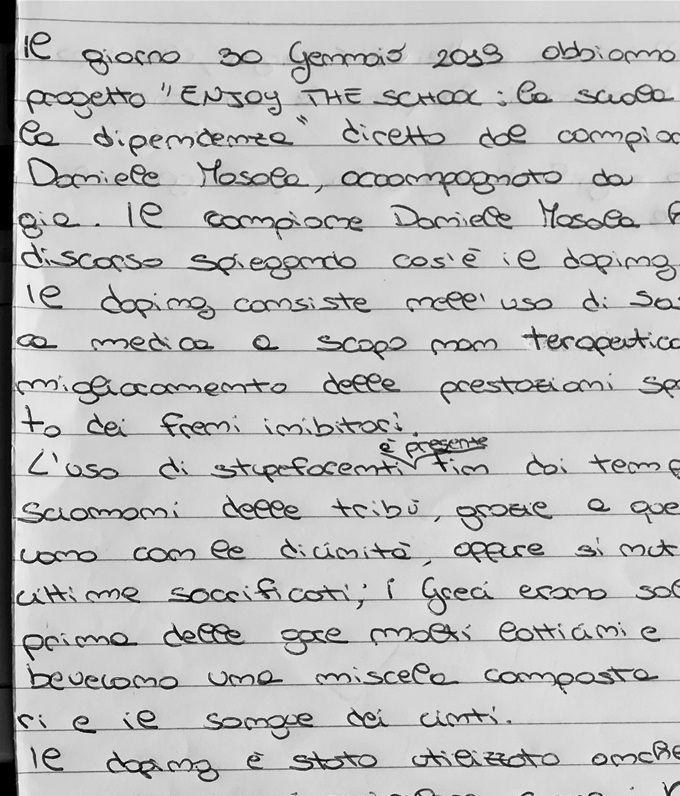 Il giorno 30 Gennaio 2019 abbiamo
progetto "ENJOY THE SCHOOL: la scuola
la dipendenza" diretto dal campio
Daniele Masala, accompagnato da
gia. Il campione Daniele Masala
discorso spiegando cos'è il doping
Il doping consiste nell'uso di so
ca medica a scopo non terapeutico
miglioramento delle prestazioni sp
to dei freni inibitori.
è presente
L'uso di stupefacenti fin dai temp
sciamani delle tribù, grazie a que
vano con le divinità, oppure si
vittime sacrificati; i Greci erano sol
prima delle gare molti lottiani e
bevevano una miscela composta
ri e il sangue dei vinti.
Il doping è stato utilizzato anche